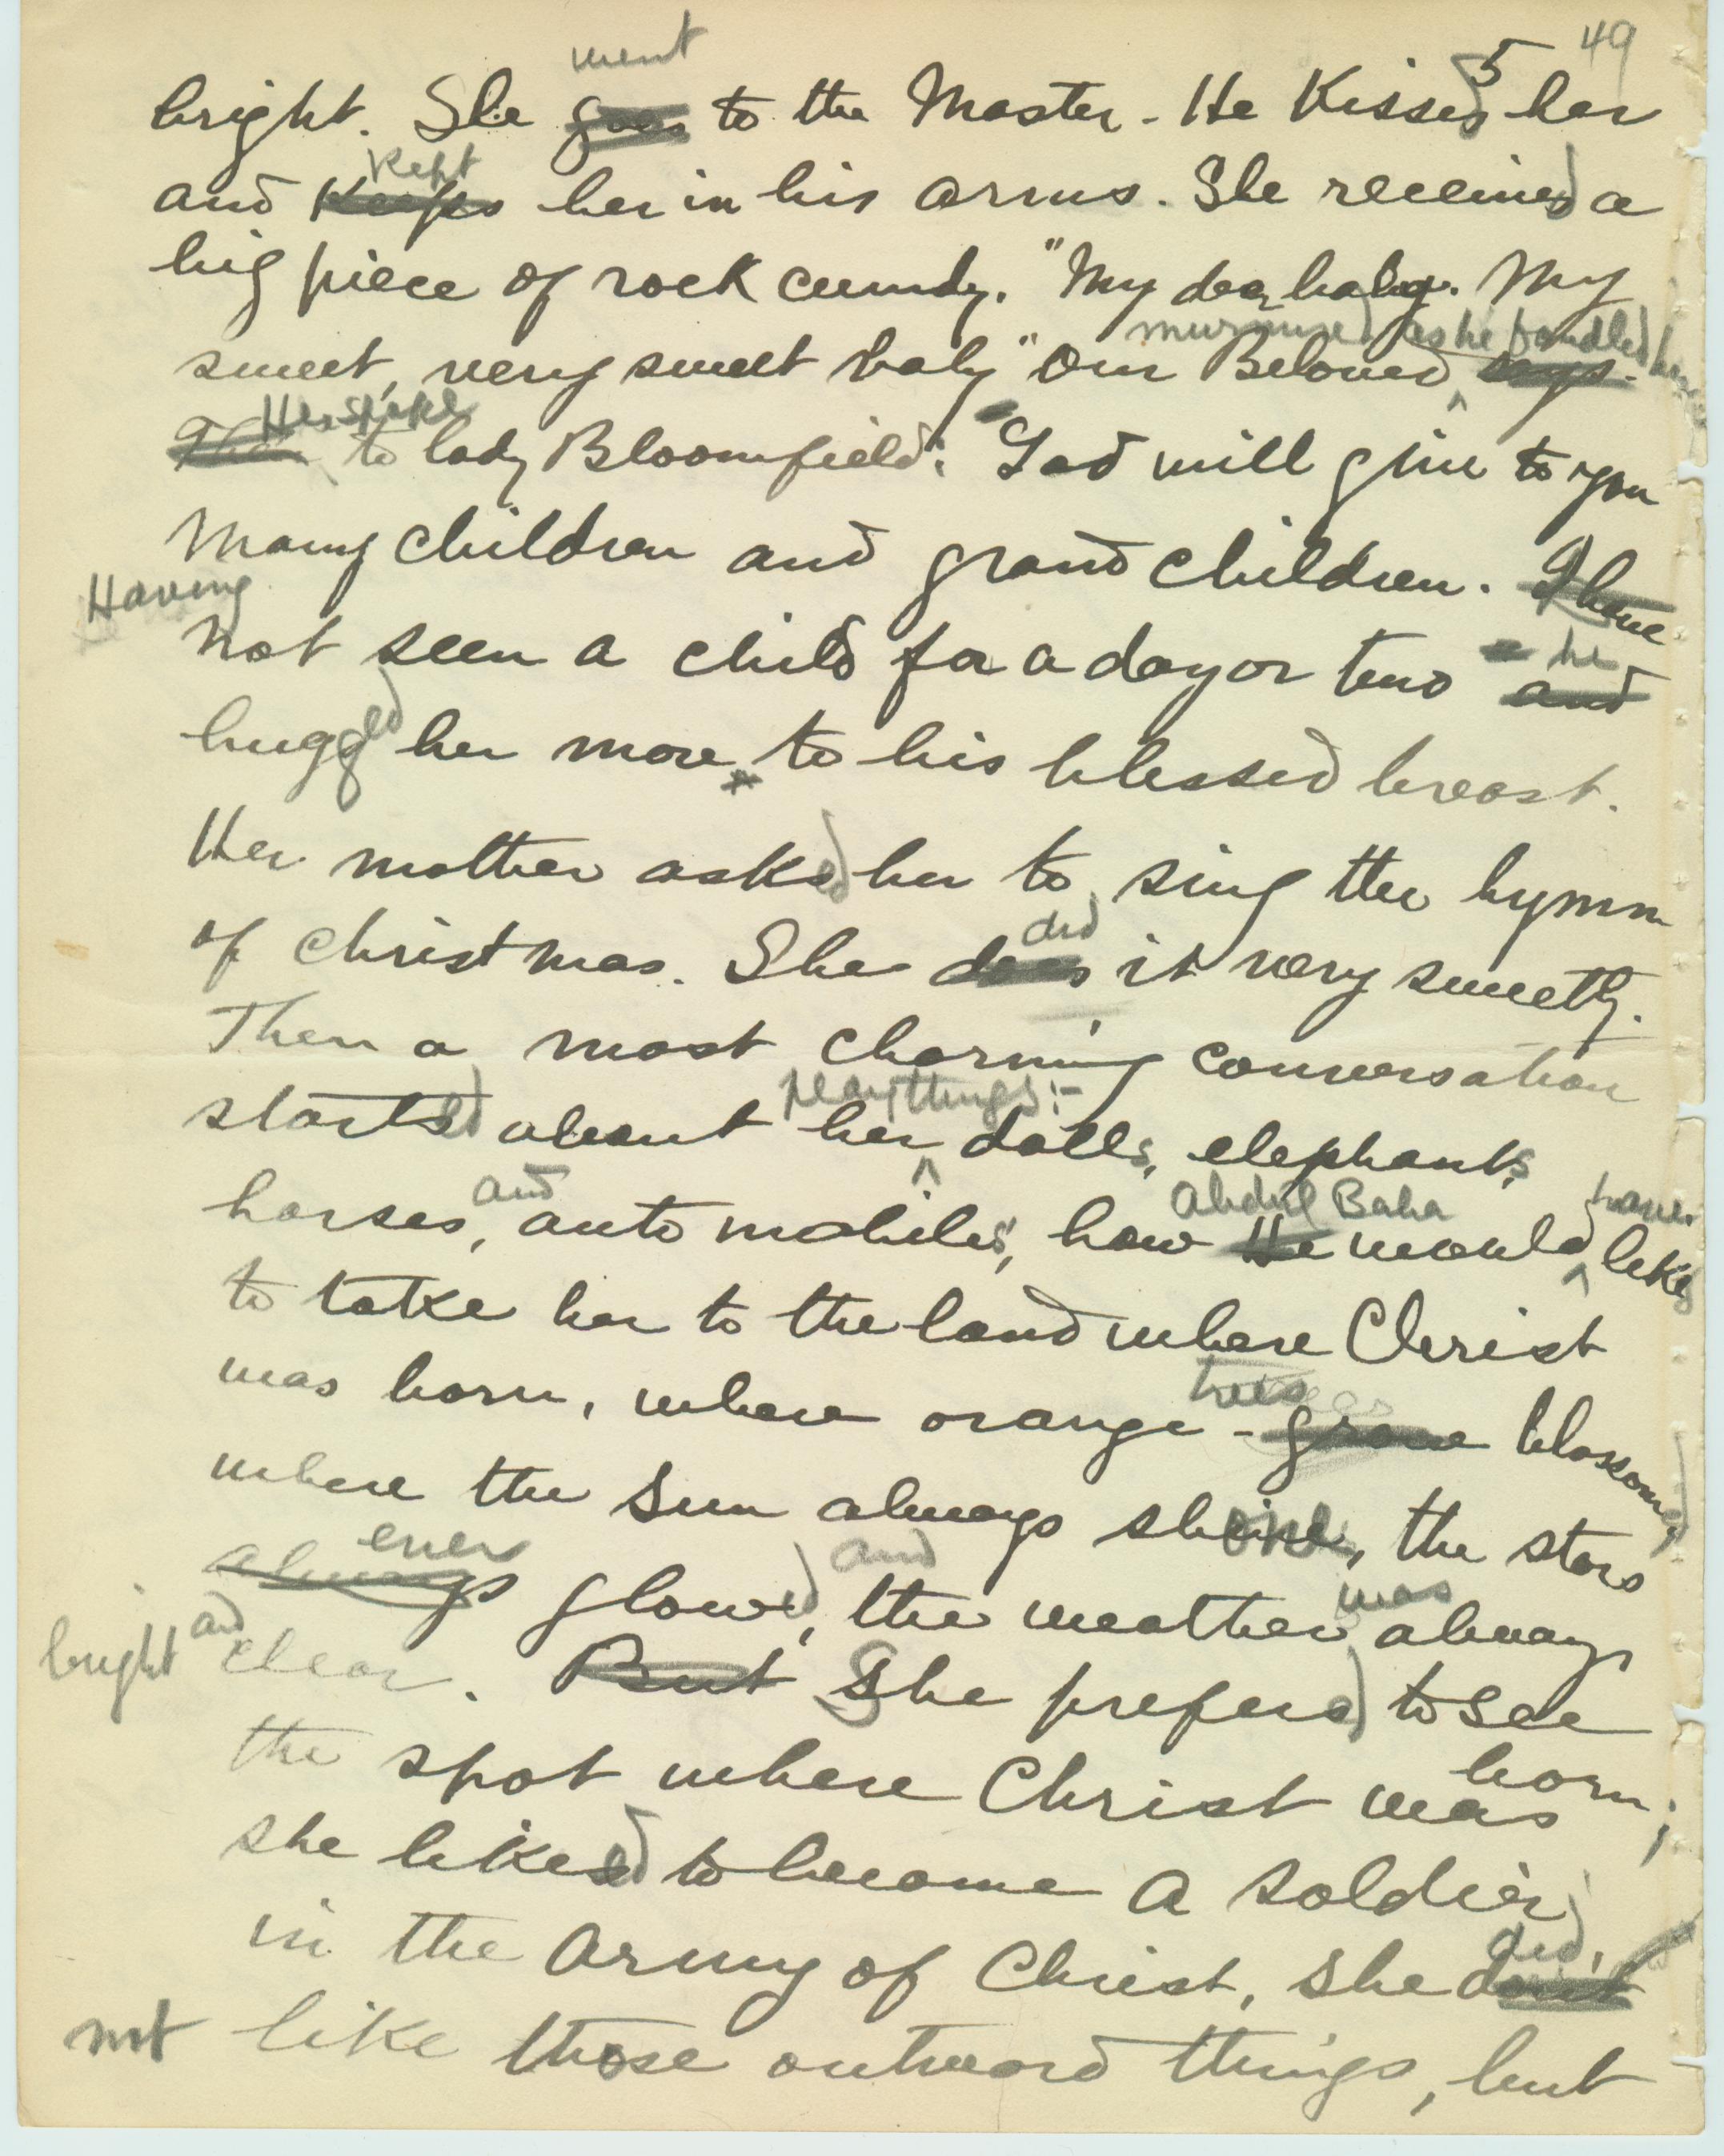 5 49
went
bright. She goes to the Master - He Kissed her
Kept
and Keeps her in his arms. She received a
big piece of rock candy. "My dear baby. My
murmured as he fondled her
sweet, very sweet baby" Our Beloved says.
He spoke
Then to lady Bloomfield: "God will give to you
many children and grand children. I have
Having
not seen a child for a day or two he and
hugged her more to his blessed breast.
Her mother asked her to sing the hymn
did
of Christmas. She does it very sweetly.
Then a most charming conversation
playthings:-
started about her dolls, elephants,
and Abdul Baha have
horses, auto mobiles, how He would like
to take her to the land where Christ
trees
was born, where orange - grove blossomed,
where the Sun always shine, the stars
ever and was
always glowed, the weather always
bright and clear. But She prefered to see
the spot where Christ was born;
she liked to become a soldier
in the Army of Christ, she don't
did
not like those outward things, but